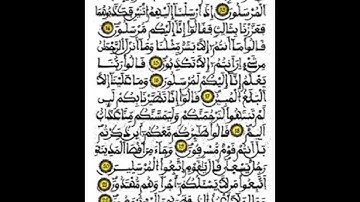 اَ۬لْمُرْسَلُونَ إِذَ اَرْسَلْنَا إِلَيْهِمُ اُ۪ثْنَيْنِ فَكَذَّبُوهُمَا
فَعَزَّزْنَا بِثَالِثٍ فَقَالُوٓاْ إِنَّآ إِلَيْكُم مُّرْسَلُونَ
قَالُواْ مَآ أَنتُمُۥٓ إِلَّا بَشَرٌ مِّثْلُنَا وَمَآ أَنزَلَ اَ۬لرَّحْمَٰنُ
مِن شَےْءٍ اِنَ اَنتُمُۥٓ إِلَّا تَكْذِبُونَ قَالُواْ رَبُّنَا
يَعْلَمُ إِنَّآ إِلَيْكُمْ لَمُرْسَلُونَ وَمَا عَلَيْنَآ إِلَّا
اَ۬لْبَلَٰغُ اُ۬لْمُبِينُ قَالُوٓاْ إِنَّا تَطَيَّرْنَا بِكُمْ لَئِن
لَّمْ تَنتَهُواْ لَنَرْجُمَنَّكُمْ وَلَيَمَسَّنَّكُم مِّنَّا عَذَابٌ
اَلِيمٌ قَالُواْ طَٰٓئِرُكُم مَّعَكُمُۥٓ أَئِن ذُكِّرْتُم
بَلَ اَنتُمْ قَوْمٌ مُّسْرِفُونَ وَجَآءَ مِنَ اَقْصَا اَ۬لْمَدِينَةِ
رَجُلٌ يَسْعَىٰ اَ۪تَّبِعُواْ اُ۬لْمُرْسَلِينَ
اَ۪تَّبِعُواْ مَن لَّا يَسْـَٔلُكُمُۥٓ أَجْرًا وَهُم مُّهْتَدُونَ